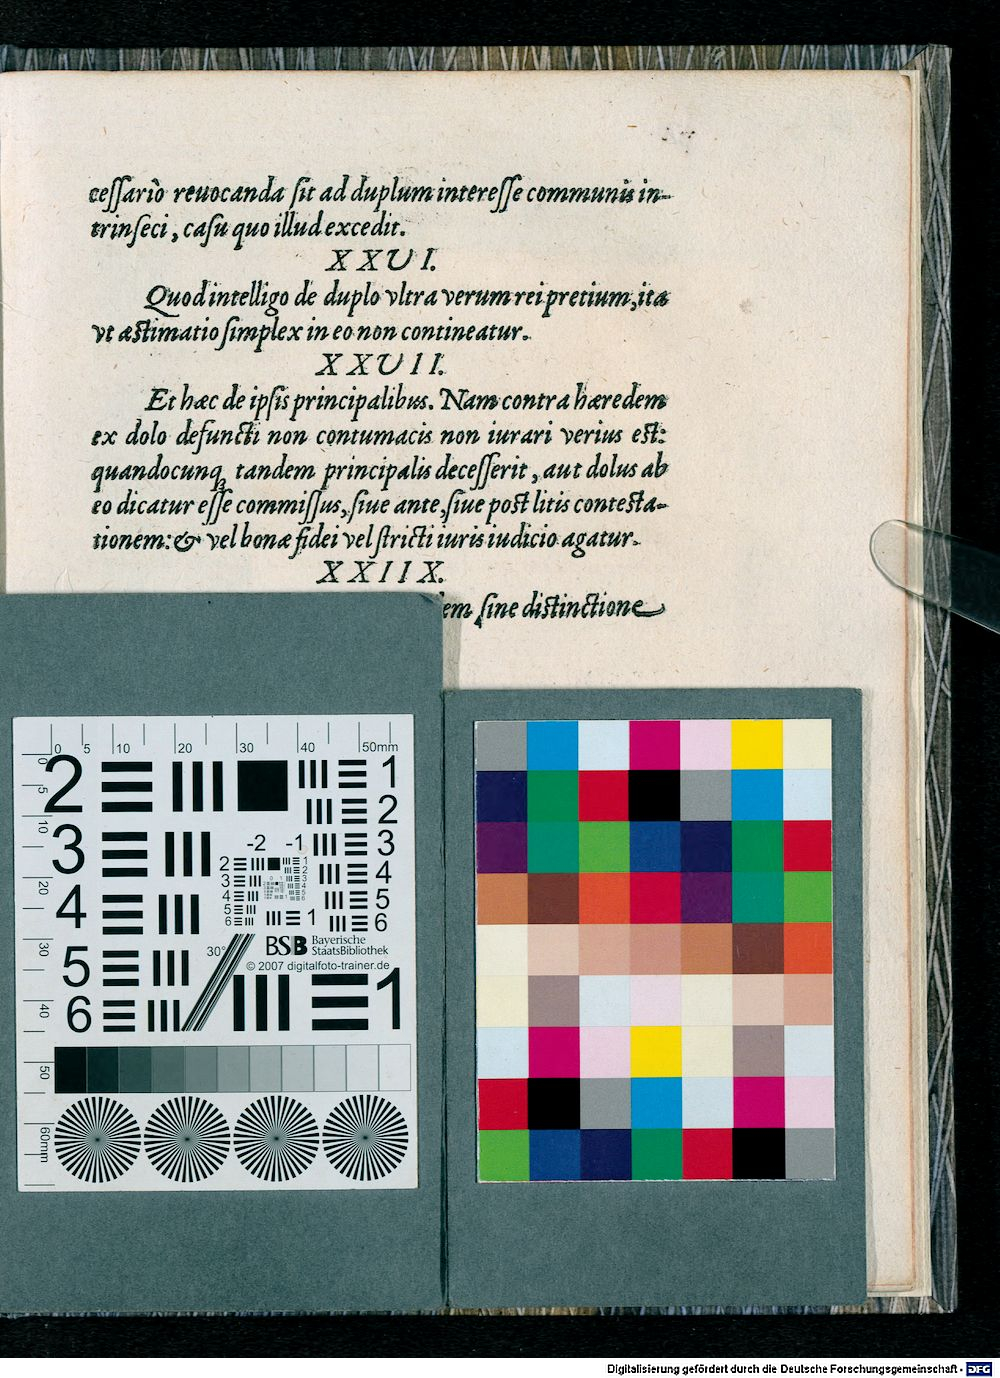 cessariò reuocanda sit ad duplum interesse communis in-
trinseci, casu quo illud excedit.
XXVI.
Quod intelligo de duplo vltra verum rei pretium, ita
vt æstimatio simplex in eo non contineatur.
XXVII.
Et hæc de ipsis principalibus. Nam contra hæredem
ex dolo defuncti non contumacis non iurari verius est:
quandocunq; tandem principalis decesserit, aut dolus ab
eo dicatur esse commissus, siue ante, siue post litis contesta-
tionem: & vel bonæ fidei vel stricti iuris iudicio agatur.
XXIIX.
dem sine distinctione
0 5 10 20 30 40 50mm
0 5 10 20 30 40 50 60mm
2 1
2
3 3
-2 -1
4 4
5 5
6 6
2
3
4
5
6
1
30°
BSB Bayerische
StaatsBibliothek
© 2007 digitalfoto-trainer.de
1
Digitalisierung gefördert durch die Deutsche Forschungsgemeinschaft - DFG